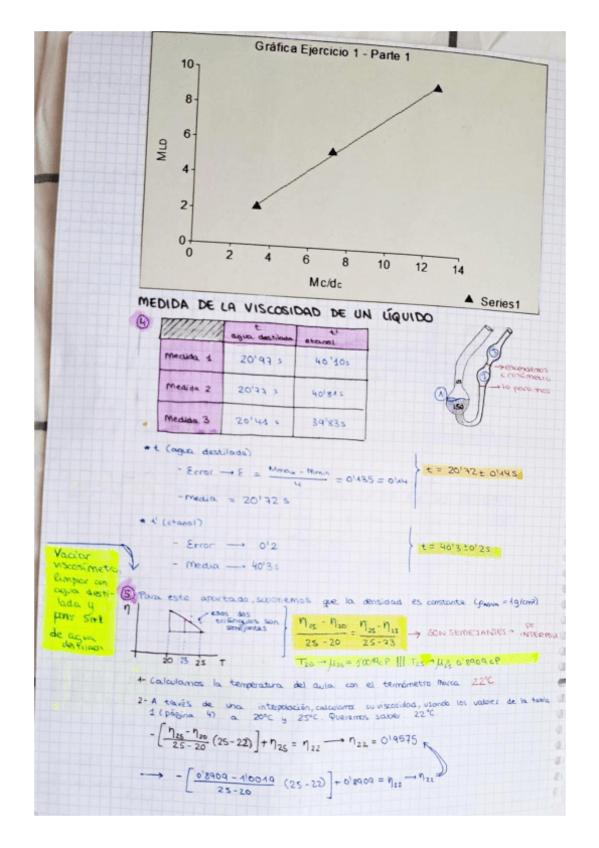 Gráfica Ejercicio 1 - Parte 1
10
8
6
4
2
0
MLD
0 2 4 6 8 10 12 14
Mc/dc
Series1
MEDIDA DE LA VISCOSIDAD DE UN LÍQUIDO
4
t agua destilada t' etanol
Medida 1 20'97 s 40'10s
Medida 2 20'77 s 40'81s
Medida 3 20'41 s 39'83s
* t (agua destilada)
- Error → E = Mmax - Mmin / 4 = 0'135 = 0'14
- media = 20'72 s
t = 20'72 ± 0'14 s
* t' (etanol)
- Error → 0'2
- Media → 40'3 s
t = 40'3 ± 0'2 s
Vaciar
viscosímetro,
limpiar con
agua desti-
lada y
poner 5ml
de agua
destilada
5 Para este apartado, suponemos que la densidad es constante (ρagua = 1g/cm³)
η
esos dos
triángulos son
semejantes
20 23 25 T
η25 - η20 / 25 - 20 = η25 - η23 / 25 - 23 → SON SEMEJANTES →
T20 → μ20 = 1'0019 cP III T25 → μ25 0'8909 cP
1- Calculamos la temperatura del aula con el termómetro. Marca 22°C
2- A través de una interpolación, calculamos su viscosidad, usando los valores de la tabla
1 (página 4) a 20°C y 25°C. Queremos saber 22°C
- [η25 - η20 / 25 - 20 (25 - 22)] + η25 = η22 → η22 = 0'9575
→ - [0'8909 - 1'0019 / 25 - 20 (25 - 22)] + 0'8909 = η22 → η22